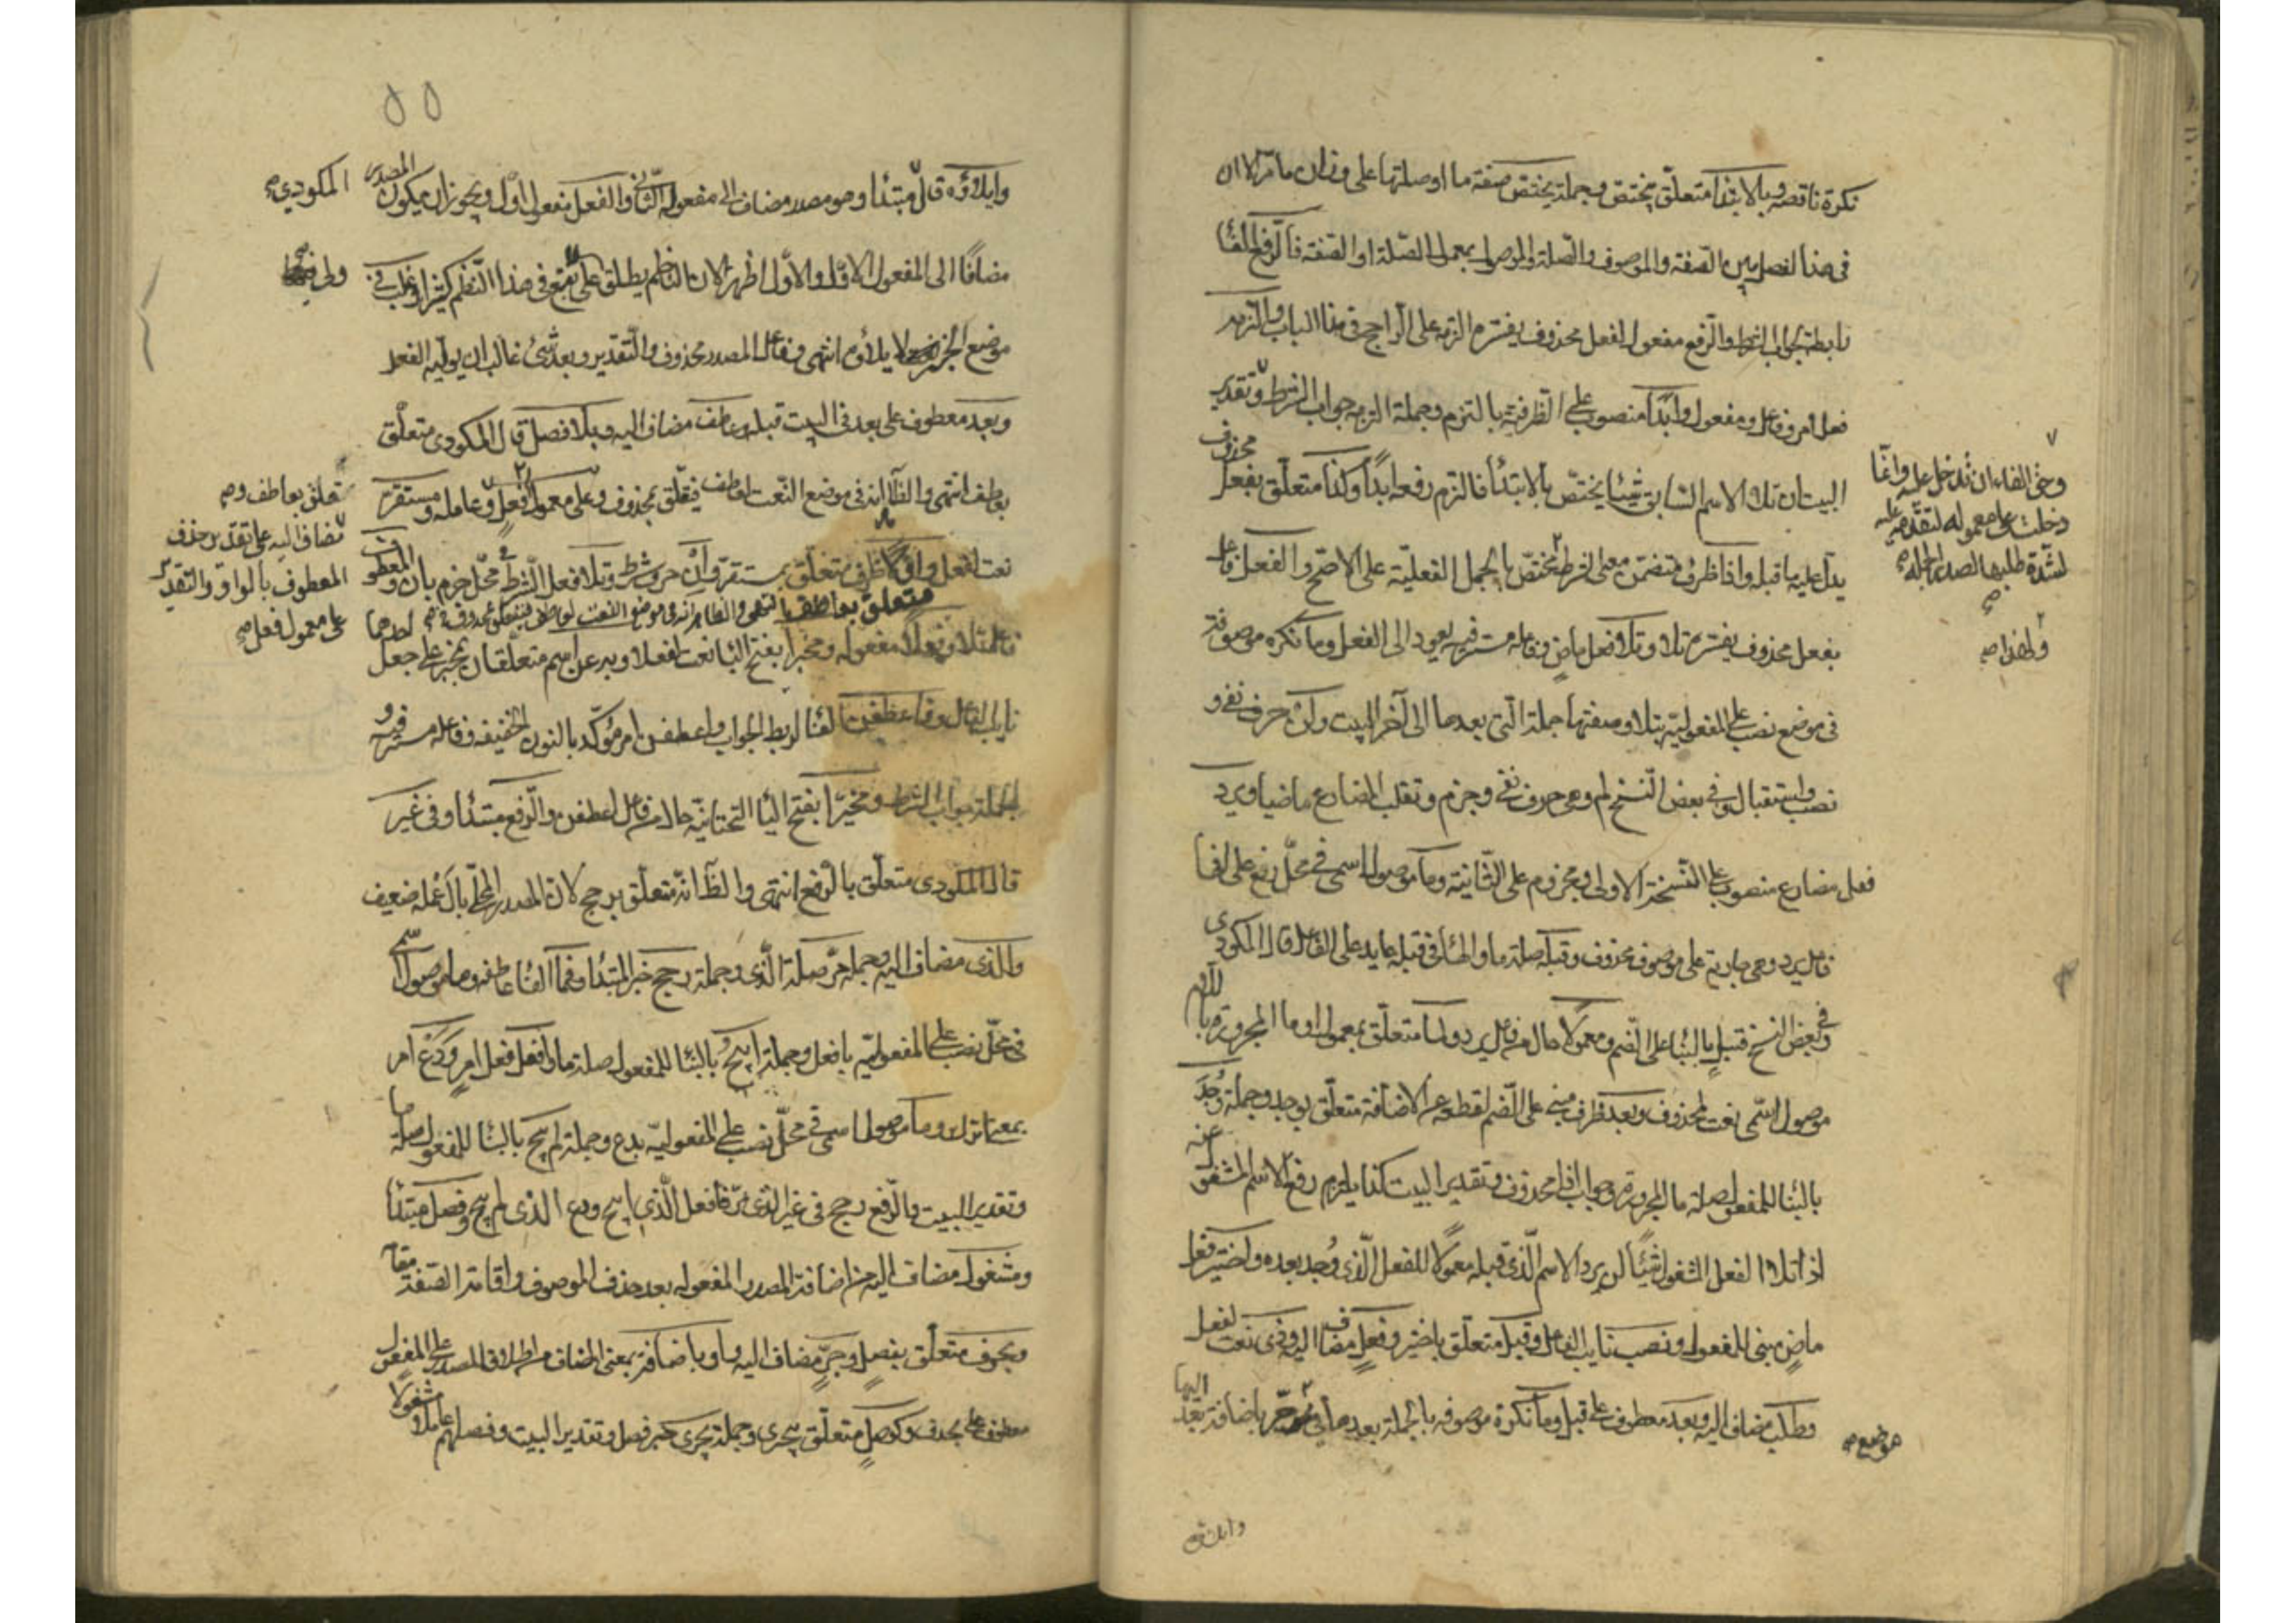 نكرة ناقصة وبالابتدا متعلق بيختص وجملة يختص صفة ما او صلتها على وزان ما مر الا ان
في هذا الفصل بين الصفة والموصوف والصلة والموصول بمعمول الصلة او الصفة فالرفع الفا
رابطة لجواب الشرط والرفع مفعول لفعل محذوف يفسره التزمه على الراجح في هذا الباب والتزمه
فعل امر وفاعل ومفعول وابدا منصوب على الظرفية بالتزم وجملة التزمه جواب الشرط وتقدير
البيت ان تلا الاسم السابق شيئا يختص بالابتدأ فالتزم رفعه ابدًا وكذا متعلق بفعل محذوف
يدل عليه ما قبله واذا ظرف متضمن معنى الشرط مختص بالجمل الفعلية على الاصح والفعل فاعل
بفعل محذوف يفسره تلا وتلا فعل ماضٍ وفاعله مستتر فيه يعود الى الفعل وما نكرة موصوفة
في موضع نصب على المفعولية بتلا وصفتها جملة التي بعدها الى آخر البيت ولن حرف نفي و
نصب واستقبال وفي بعض النسخ لم وهي حرف نفي وجزم وتقلب المضارع ماضيا ويرد
فعل مضارع منصوب على النسخة الاولى ومجزوم على الثانية وما موصول اسمي في محل رفع على انها
فاعل يرد وهي جارية على موصوف محذوف وقبله صلة ما والهأ في قبله عايد على الفاعل قال المكودي
وفي بعض النسخ قبل بالبنا على الضم ومعمولا حال من فاعل يرد ولما متعلق بمعمول او ما المجرورة باللام
موصول اسمي نعت لمحذوف وبعد ظرف مبني على الضم لقطعه عن الاضافة متعلق بوجد وجملة وُجِدَ
بالبنا للمفعول صلة ما المجرورة وجواب اذا محذوف وتقدير البيت كذا يلزم رفع الاسم المشغول عنه
اذا تلا الفعل المشغول شيئًا لن يرد الاسم الذي قبله معمولًا للفعل الذي وُجد بعده واختير فعل
ماضٍ مبني للمفعول ونصب نايب الفاعل وقبل متعلق باختير وفعلٍ مضاف اليه وذي نعت لفعل
وطلب مضاف اليه وبعد معطوف على قبل وما نكرة موصوفة بالجملة بعدها في جر باضافة بعد اليها
وحق الفاء ان تدخل عليه وانما
دخلت على معموله لتقدمه عليه
لشدة طلبها الصدر
موضع صح
وايلاؤه
وايلاؤه قال مبتدأ وهو مصدر مضاف الى مفعوله الثاني والفعل مفعوله الاول ويجوز ان يكون المصدر
مضافًا الى المفعول الاول والاول اظهر لان الناظم يطلق على تبع في هذا النظم كثيرا
موضع الخبر لايلاؤه انتهى وفاعل المصدر محذوف والتقدير وبعد شئ غالب ان يوليه الفعل
وبعد معطوف على بعد في البيت قبله وعاطف مضاف اليه وبلا فصل قال المكودي متعلق
بعاطف انتهى والظاهر انه في موضع النعت لعاطف فيتعلق بمحذوف وعلى معمول فعلٍ وعامله ومستقر
نعت لفعل واولا ظرف متعلق بمستقر وان حرف شرط وتلا فعل الشرط في محل جزم بان والمعطوف
متعلق بعاطف انتهى والظاهر انه في موضع النعت لعاطف فيتعلق بمحذوف
فاعل تلا وفعلا مفعوله ومخبرا بفتح البا نعت لفعلا وبه عن اسم متعلقان بمخبر على جعل احدهما
نايب الفاعل وفاعطفن الفا لربط الجواب واعطفن امر مؤكد بالنون الخفيفة وفاعله مستتر فيه و
الجملة جواب الشرط ومخيّرا بفتح اليا التحتانية حال من فاعل اعطفن والرفع مبتدأ وفي غير
قال المكودي متعلق بالرفع انتهى والظاهر انه متعلق برجح لان المصدر المحلى بال عمله ضعيف
والذي مضاف اليه وجملة مر صلة الذي وجملة رجح خبر المبتدأ وفما الفا عاطفة وما موصول اسمي
في محل نصب على المفعولية بافعل وجملة ابيح بالبنا للمفعول صلة ما وافعل فعل امر ودَعْ امر
بمعنى اترك وما موصول اسمي في محل نصب على المفعولية بدع وجملة لم يبح بالبنا للمفعول صلة ما
وتقدير البيت والرفع رجح في غير الذي مر فافعل الذي ابيح ودع الذي لم يبح وفصل مبتدأ
ومشغول مضاف اليه من اضافة المصدر الى مفعوله بعد حذف الموصوف واقامة الصفة مقامه
وبحرف متعلق بفصل وجرٍّ مضاف اليه واو باضافة بمعنى المضاف من اطلاق المصدر على المفعول
معطوف على بحرف وكوصل متعلق بيجري وجملة يجري خبر فصل وتقدير البيت وفصلهم عاملا مشغولا
المكودي صح
متعلق بعاطف
مضاف اليه على تقدير حذف
المعطوف بالواو والتقدير
على معمول فعل صح